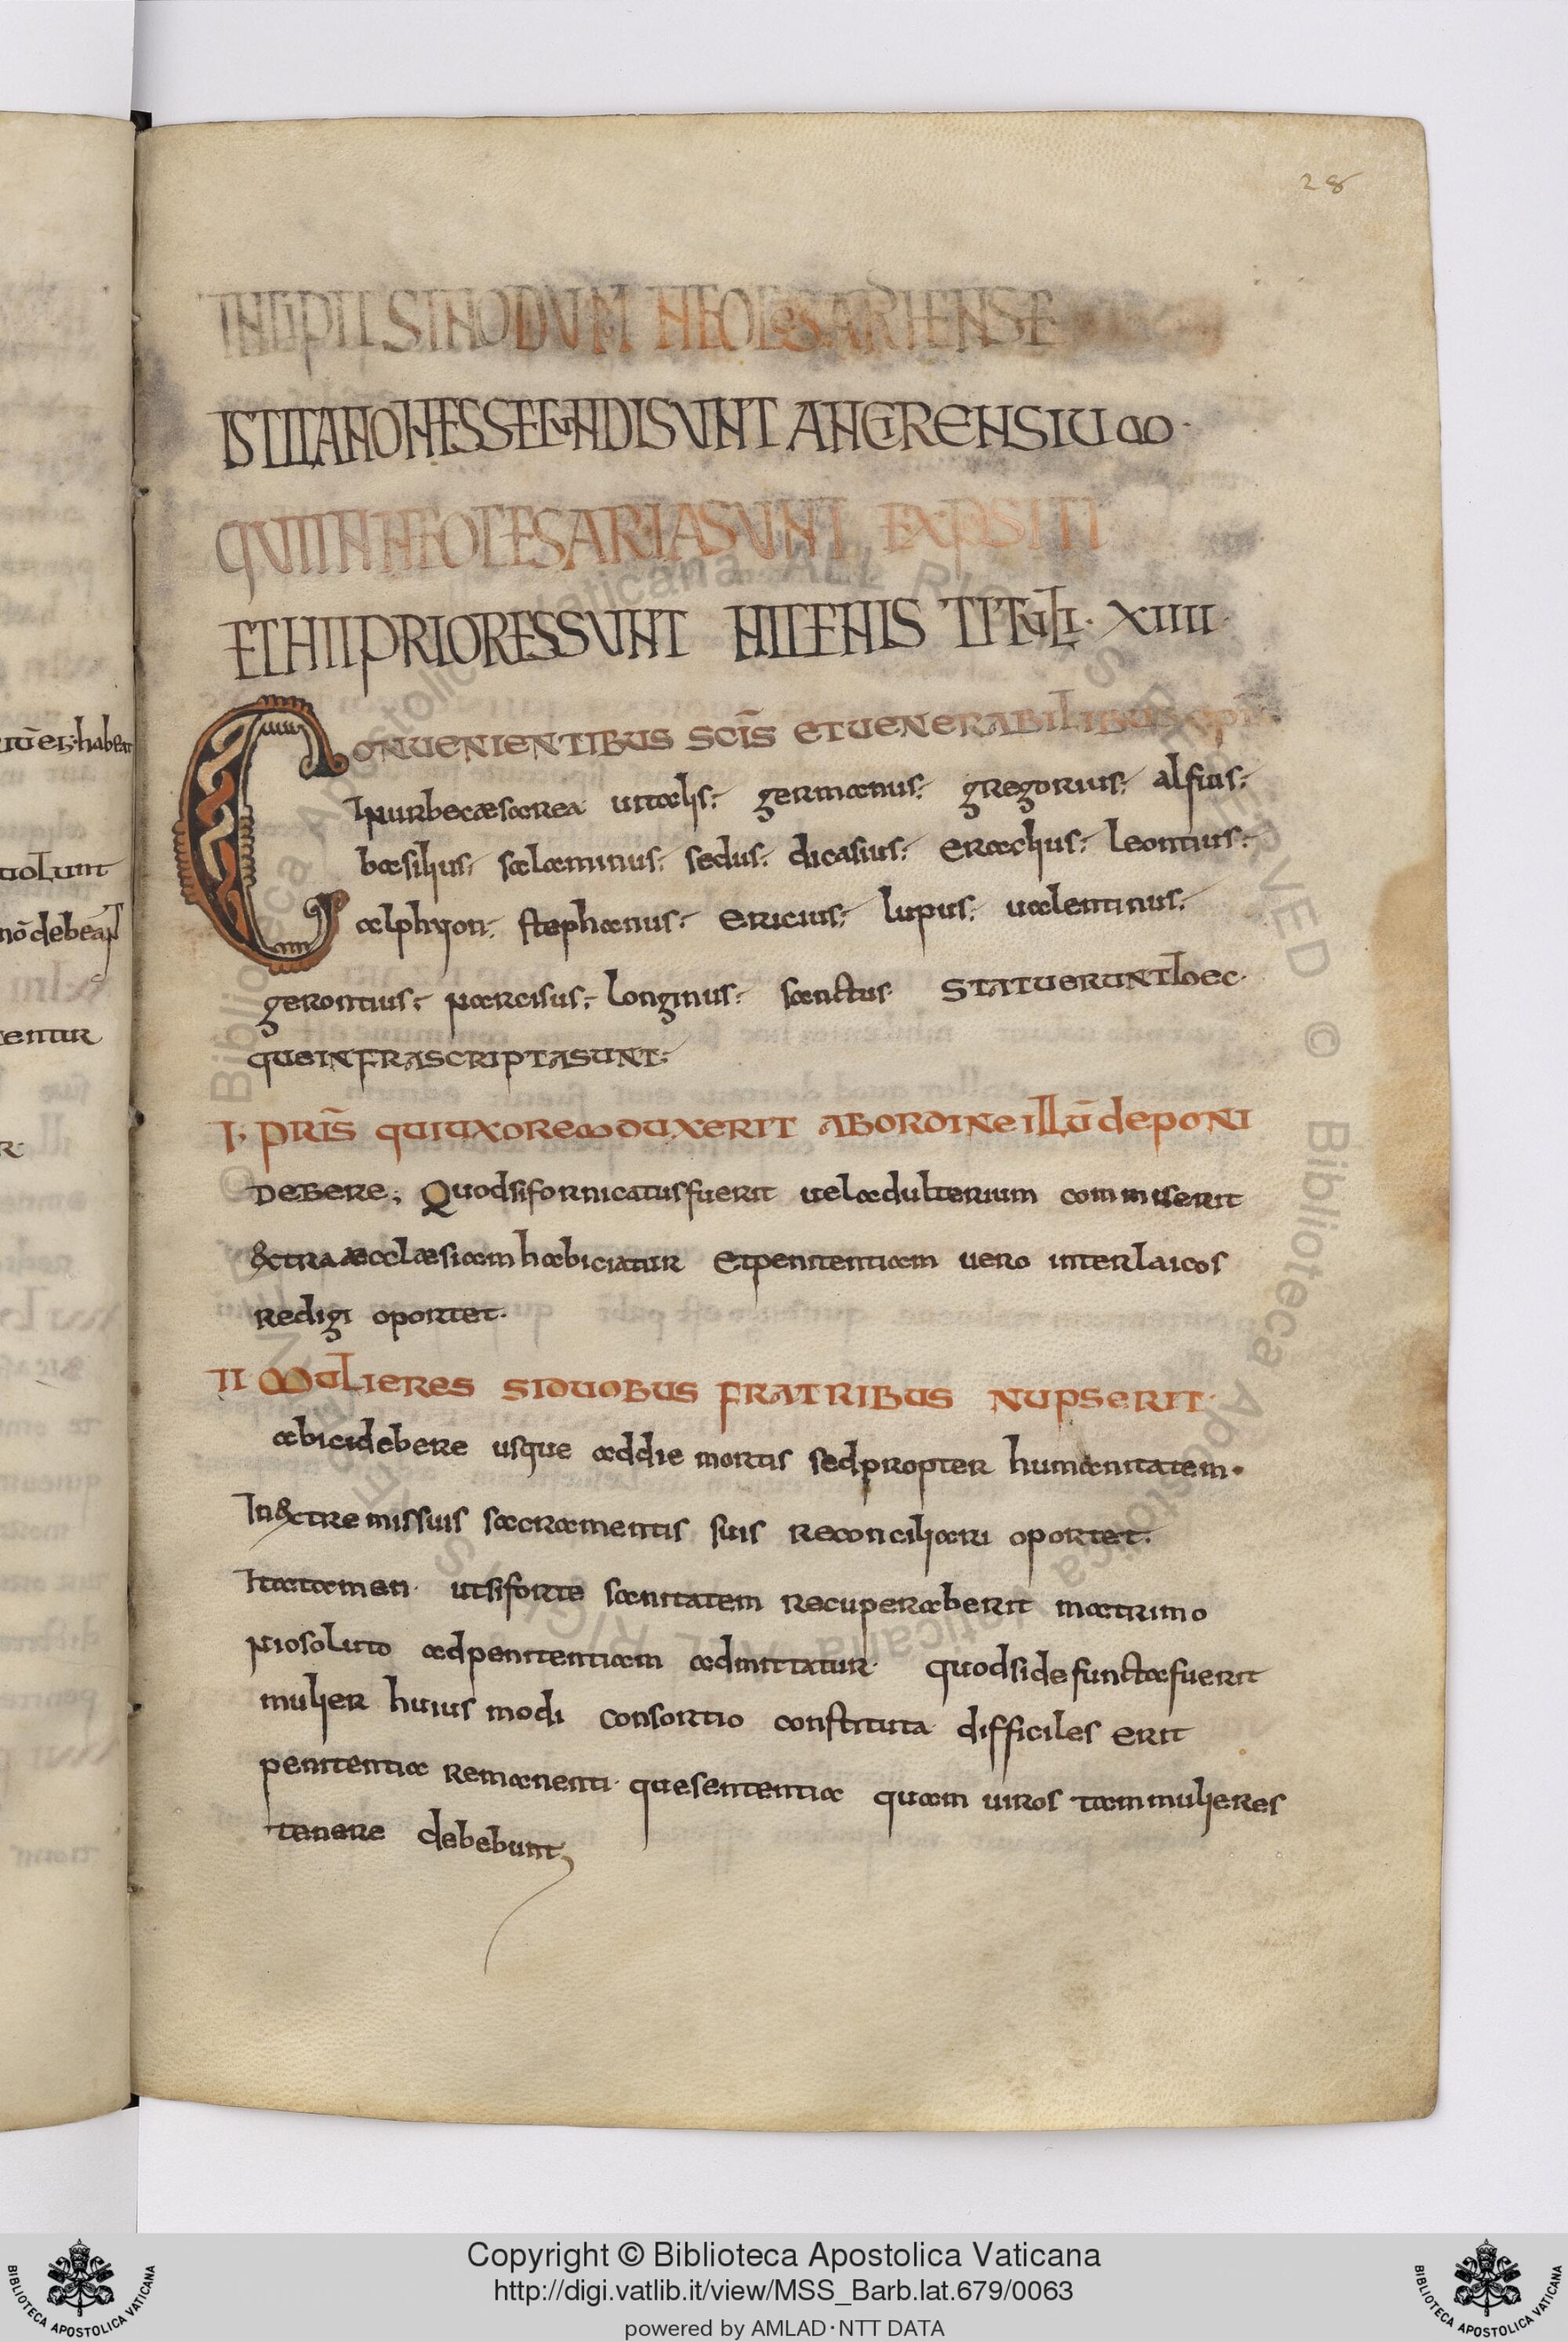 28
INCIPIT SINODUM NEOCESARIENSE
ISTI CANONES SECUNDI SUNT ANCIRENSIUM·
QUI IN NEOCESARIA SUNT EXPOSITI
ET HII PRIORES SUNT NICENIS TITULI· XIIII·
CONUENIENTIBUS SCĪS ET UENERABILIBUS
In urbe cæsarea uitalis; germanus; gregorius; alfius;
basilius; salaminus; sedus; dicasius; eraclius; leontius;
alphyon; stephanus; ericius; lupus; ualentinus;
gerontius; narcisus; longinus; sanctus· STATUERUNT hoec·
que INFRASCRIPTA SUNT;
I· PRIS̄ QUI UXOREM DUXERIT AB ORDINE ILLŪ dePONI
DEBERE; Quod si fornicatus fuerit uel adulterium commiserit
extra æcclæsiam habiciatur Et penitentiam uero inter laicos
redigi oportet·
II MULIERES SI DUOBUS FRATRIBUS NUPSERIT·
abici debere usque ad die mortis sed propter humanitatem·
In extremis suis sacramentis suis reconciliari oportet·
Ita tamen· ut si forte sanitatem recuperaberit matrimo
nio soluto ad penitentiam admittatur· quod si defuncta fuerit
mulier huius modi consortio constituta difficiles erit
penitentia remanenti· que sententia quam uiros tam mulieres
tenere debebunt,
uolunt
nō debeaNT
Copyright © Biblioteca Apostolica Vaticana
http://digi.vatlib.it/view/MSS_Barb.lat.679/0063
powered by AMLAD·NTT DATA
BIBLIOTECA APOSTOLICA VATICANA
BIBLIOTECA APOSTOLICA VATICANA